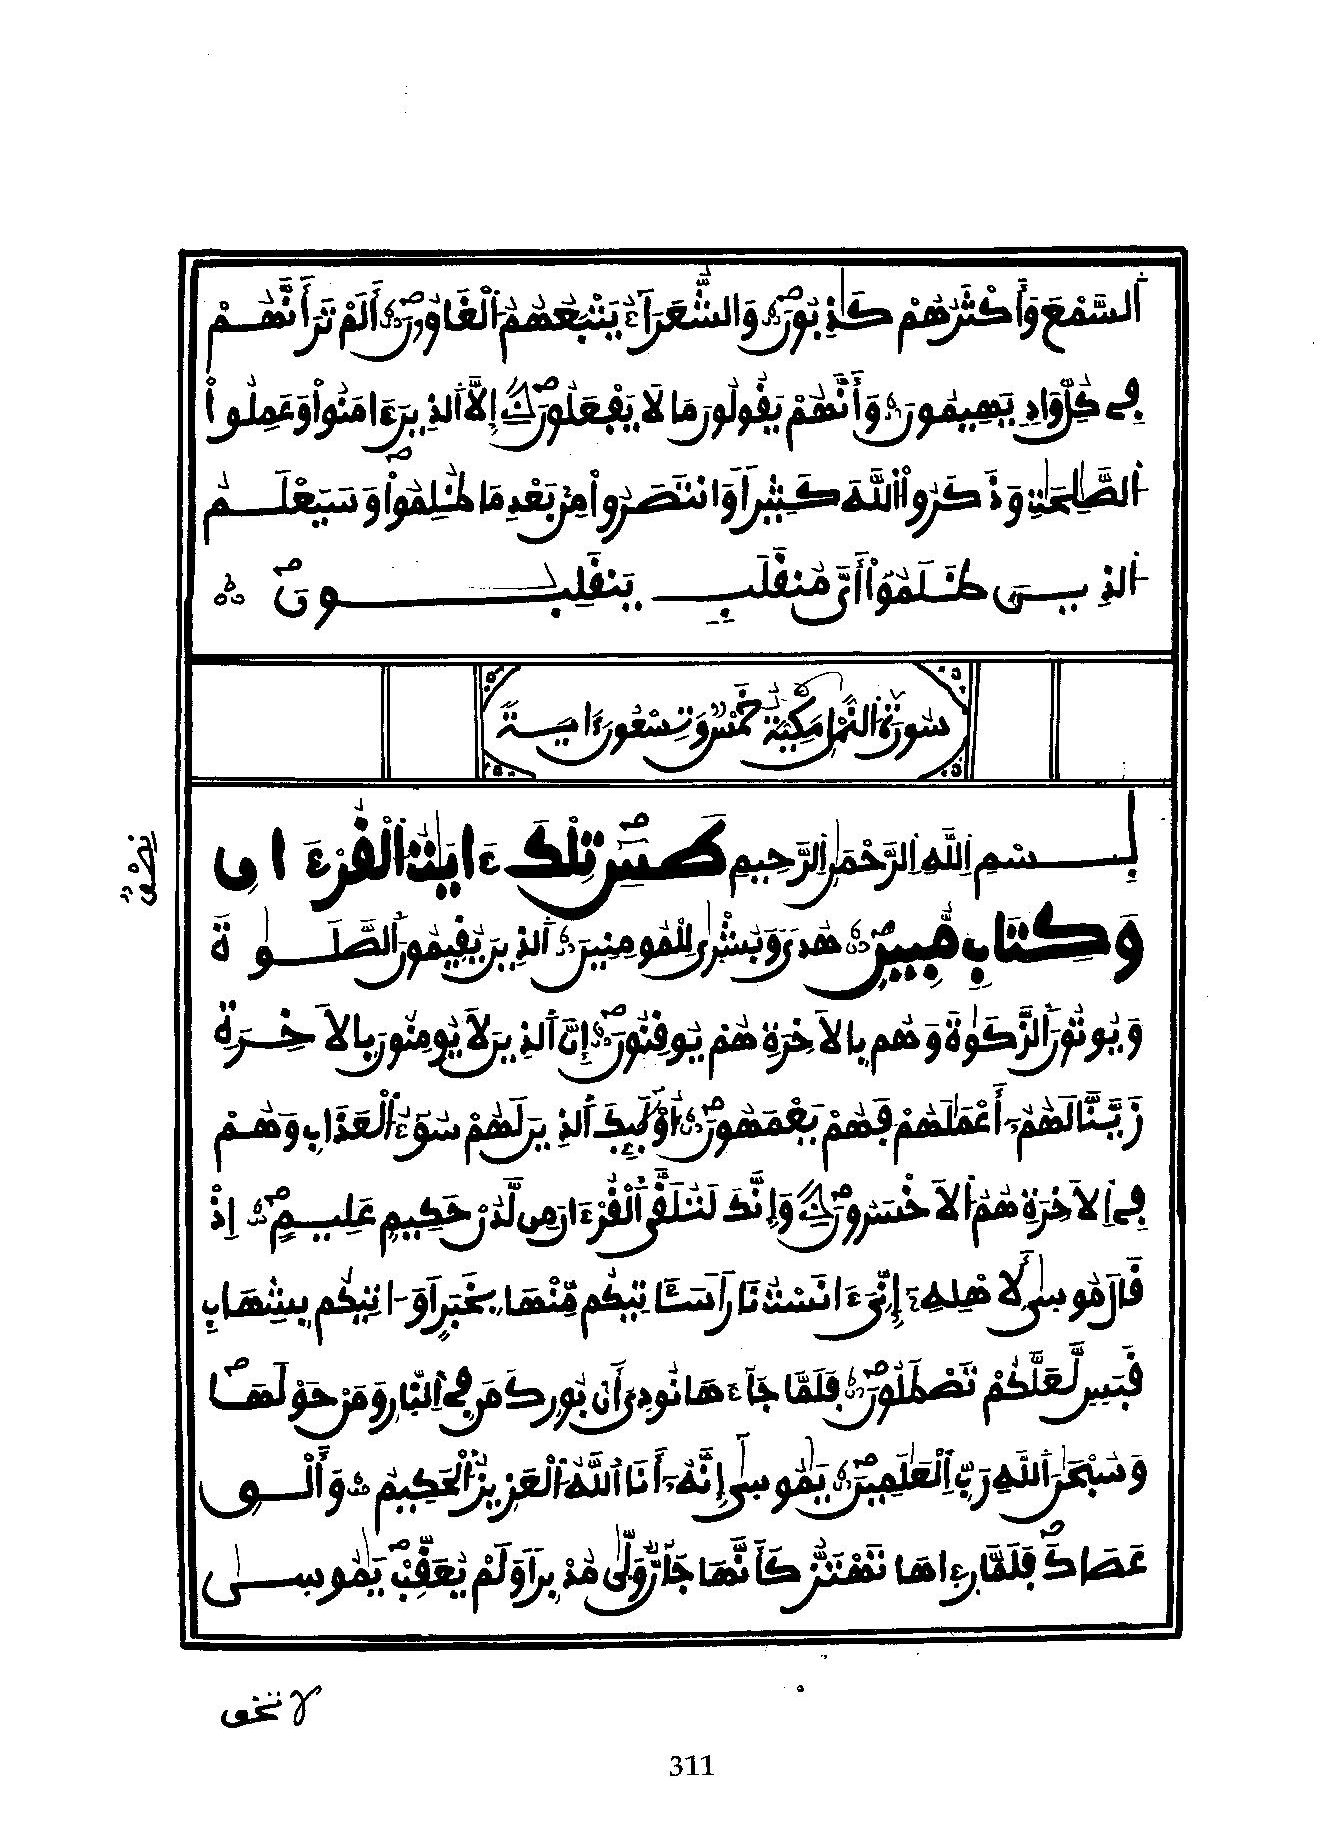 اَ۬لسَّمْعَ وَأَكْثَرُهُمْ كَٰذِبُونَ وَالشُّعَرَآءُ يَتْبَعُهُمُ اُ۬لْغَاوُۥنَ أَلَمْ تَرَ أَنَّهُمْ
فِے كُلِّ وَادٖ يَهِيمُونَ وَأَنَّهُمْ يَقُولُونَ مَا لَا يَفْعَلُونَ إِلَّا اَ۬لذِينَ ءَامَنُواْ وَعَمِلُواْ
اُ۬لصَّٰلِحَٰتِ وَذَكَرُواْ اُ۬للَّهَ كَثِيراٗ وَانتَصَرُواْ مِنۢ بَعْدِ مَا ظُلِمُواْ وَسَيَعْلَمُ
اُ۬لذِينَ ظَلَمُوٓاْ أَيَّ مُنقَلَبٖ يَنقَلِبُونَ
سُورَةُ اُ۬لنَّمْلِ مَكِّيَّةٌ خَمْسٌ وَتِسْعُونَ ءَايَةً
بِسْمِ اِ۬للَّهِ اِ۬لرَّحْمَٰنِ اِ۬لرَّحِيمِ طَسٓ تِلْكَ ءَايَٰتُ اُ۬لْقُرْءَانِ
وَكِتَابٖ مُّبِينٍ هُديٗ وَبُشْر۪يٰ لِلْمُومِنِينَ اَ۬لذِينَ يُقِيمُونَ اَ۬لصَّلَوٰةَ
وَيُوتُونَ اَ۬لزَّكَوٰةَ وَهُم بِالَاخِرَةِ هُمْ يُوقِنُونَ إِنَّ اَ۬لذِينَ لَا يُومِنُونَ بِالَاخِرَةِ
زَيَّنَّا لَهُمُۥٓ أَعْمَٰلَهُمْ فَهُمْ يَعْمَهُونَ أُوْلَٰٓئِكَ اَ۬لذِينَ لَهُمْ سُوٓءُ اُ۬لْعَذَابِ وَهُمْ
فِے اِ۬لَاخِرَةِ هُمُ اُ۬لَاخْسَرُونَ وَإِنَّكَ لَتُلَقَّى اَ۬لْقُرْءَانَ مِن لَّدُنْ حَكِيمٍ عَلِيمٍ إِذْ
قَالَ مُوس۪يٰ لِأَهْلِهِۦٓ إِنِّيَ ءَانَسْتُ نَاراٗ سَـَٔاتِيكُم مِّنْهَا بِخَبَرٍ اَوَ اٰتِيكُم بِشِهَابِ
قَبَسٖ لَّعَلَّكُمْ تَصْطَلُونَ فَلَمَّا جَآءَهَا نُودِيَ أَنۢ بُورِكَ مَن فِے اِ۬لنّ۪ارِ وَمَنْ حَوْلَهَا
وَسُبْحَٰنَ اَ۬للَّهِ رَبِّ اِ۬لْعَٰلَمِينَ يَٰمُوس۪يٰٓ إِنَّهُۥٓ أَنَا اَ۬للَّهُ اُ۬لْعَزِيزُ اُ۬لْحَكِيمُ وَأَلْقِ
عَصَاكَ فَلَمَّا ر۪ء۪اهَا تَهْتَزُّ كَأَنَّهَا جَآنّٞ وَلّ۪يٰ مُدْبِراٗ وَلَمْ يُعَقِّبْ يَٰمُوس۪يٰ
نِصْفٌ
311